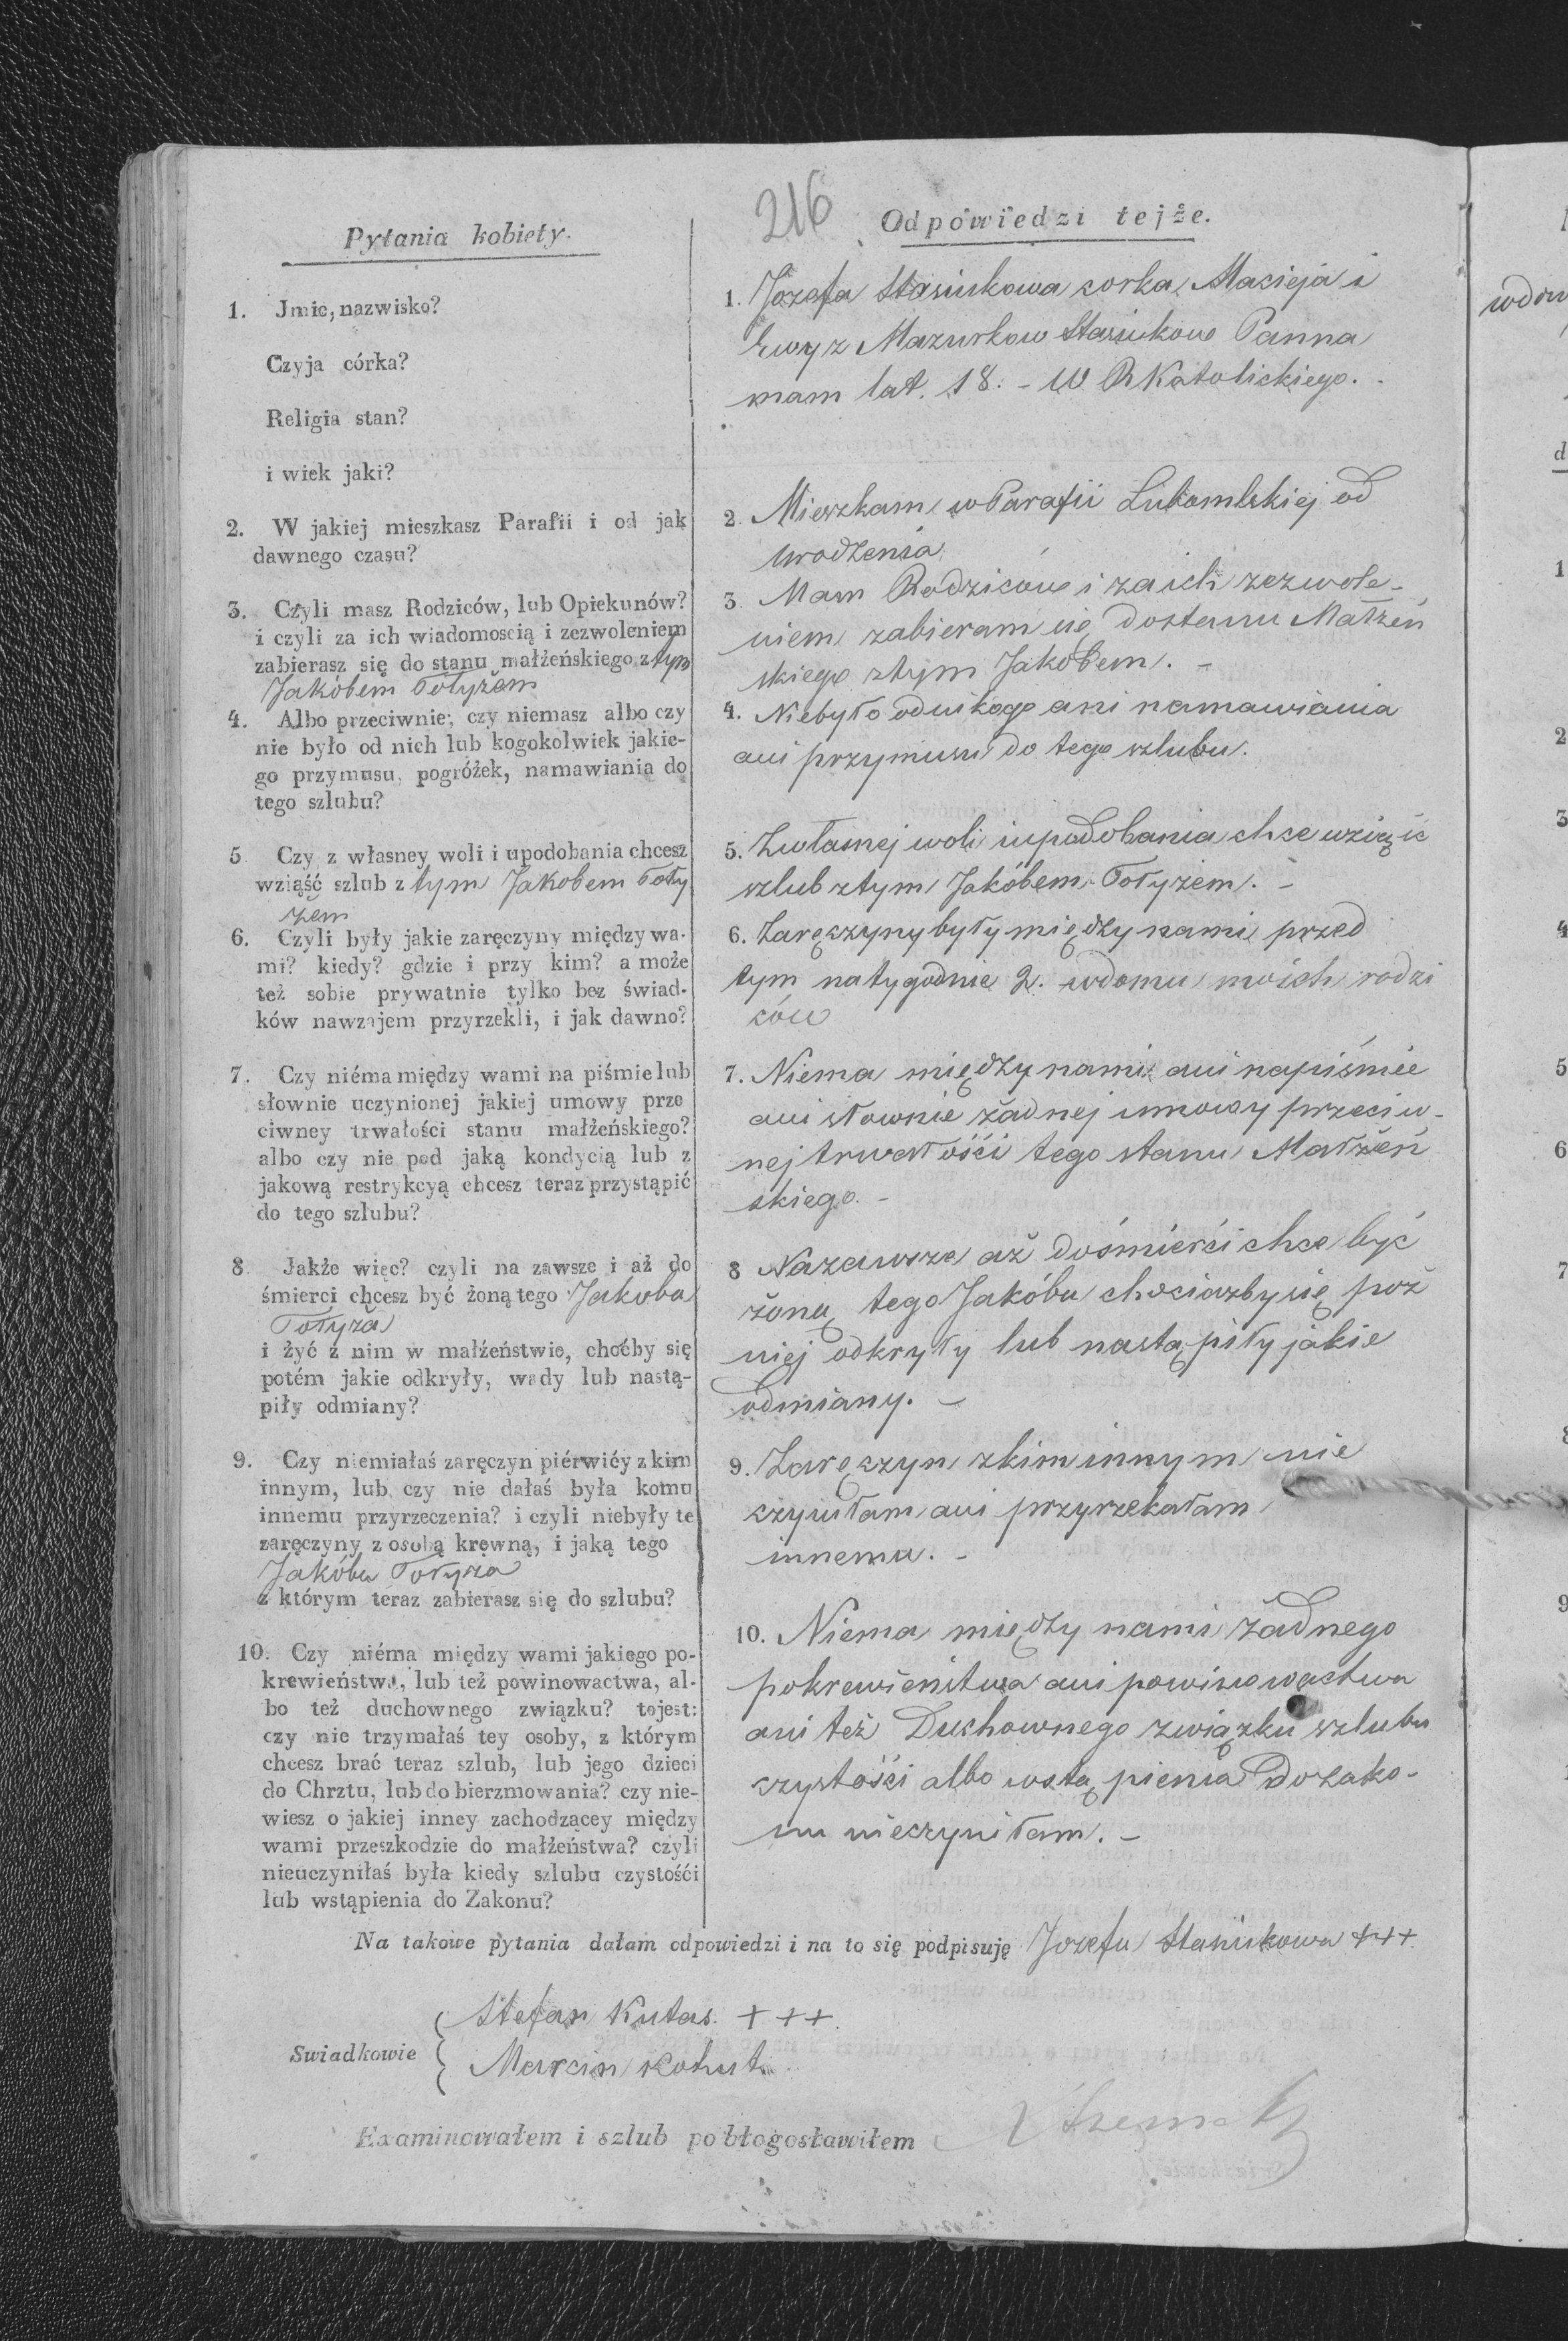 216
Pytania kobiety.
1. Jmie, nazwisko?
Czyja córka?
Religia stan?
i wiek jaki?
2. W jakiej mieszkasz Parafii i od jak
dawnego czasu?
3. Czyli masz Rodziców, lub Opiekunów?
i czyli za ich wiadomoscią i zezwoleniem
zabierasz się do stanu małżeńskiego z tym
Jakóbem Tołyżem
4. Albo przeciwnie, czy niemasz albo czy
nie było od nich lub kogokolwiek jakie-
go przymusu, pogróżek, namawiania do
tego szlubu?
5 Czy z własney woli i upodobania chcesz
wziąść szlub z tym Jakobem Toły
żem
6. Czyli były jakie zaręczyny między wa-
mi? kiedy? gdzie i przy kim? a może
też sobie prywatnie tylko bez świad-
ków nawzajem przyrzekli, i jak dawno?
7. Czy niéma między wami na piśmie lub
słownie uczynionej jakiej umowy prze
ciwney trwałości stanu małżeńskiego?
albo czy nie pod jaką kondycią lub z
jakową restrykcyą chcesz teraz przystąpić
do tego szlubu?
8 Jakże więc? czyli na zawsze i aż do
śmierci chcesz być żoną tego Jakoba
Tołyża
i żyć z nim w małżeństwie, choćby się
potém jakie odkryły, wady lub nastą-
piły odmiany?
9. Czy niemiałaś zaręczyn piérwićy z kim
innym, lub czy nie dałaś była komu
innemu przyrzeczenia? i czyli niebyły te
zaręczyny z osobą krewną, i jaką tego
Jakóba Tołyża
z którym teraz zabierasz się do szlubu?
10. Czy niéma między wami jakiego po-
krewieństwa, lub też powinowactwa, al-
bo też duchownego związku? tojest:
czy nie trzymałaś tey osoby, z którym
chcesz brać teraz szlub, lub jego dzieci
do Chrztu, lub do bierzmowania? czy nie-
wiesz o jakiej inney zachodzącey między
wami przeszkodzie do małżeństwa? czyli
nieuczyniłaś była kiedy szlubu czystośći
lub wstąpienia do Zakonu?
Odpowiedzi tejże.
1. Jozefa Stasiukowa corka Macieja i
Ewy z Mazurkow Stasiukow Panna
mam lat. 18. - W R Katolickiego. -
2. Mieszkam w Parafii Lubomlskiej od
urodzenia
3. Mam Rodziców i za ich zezwole-
niem zabieram się do stanu Małżeń
skiego z tym Jakobem. -
4. Niebyło od nikogo ani namawiania
ani przymusu do tego szlubu.
5. Zwłasnej woli i upodobania chce wziąść
szlub z tym Jakóbem Tołyżem. -
6. Zaręczyny były między nami przed
tym na tygodnie 2. w domu moich rodzi
ców
7. Niema między nami ani na piśmie
ani słownie żadnej umowy przeciw-
nej trwałości tego stanu Małżeń
skiego. -
8 Na zawsze aż do śmierci chce być
żoną tego Jakóba chociażby się póź
niej odkryły lub nastąpiły jakie
odmiany. -
9. Zaręczyn z kim innym nie
czyniłam ani przyrzekałam
innemu. -
10. Niema między nami żadnego
pokrewieństwa ani powinowactwa
ani też Duchownego związku szlubu
czystości albo wstąpienia do zako-
nu nieczyniłam. -
Na takowe pytania dałam odpowiedzi i na to się podpisuję Jozefa Stasiukowa +++
Swiadkowie
Stefan Kutas. +++
Marcin Kohut
Examinowałem i szlub pobłogosławiłem